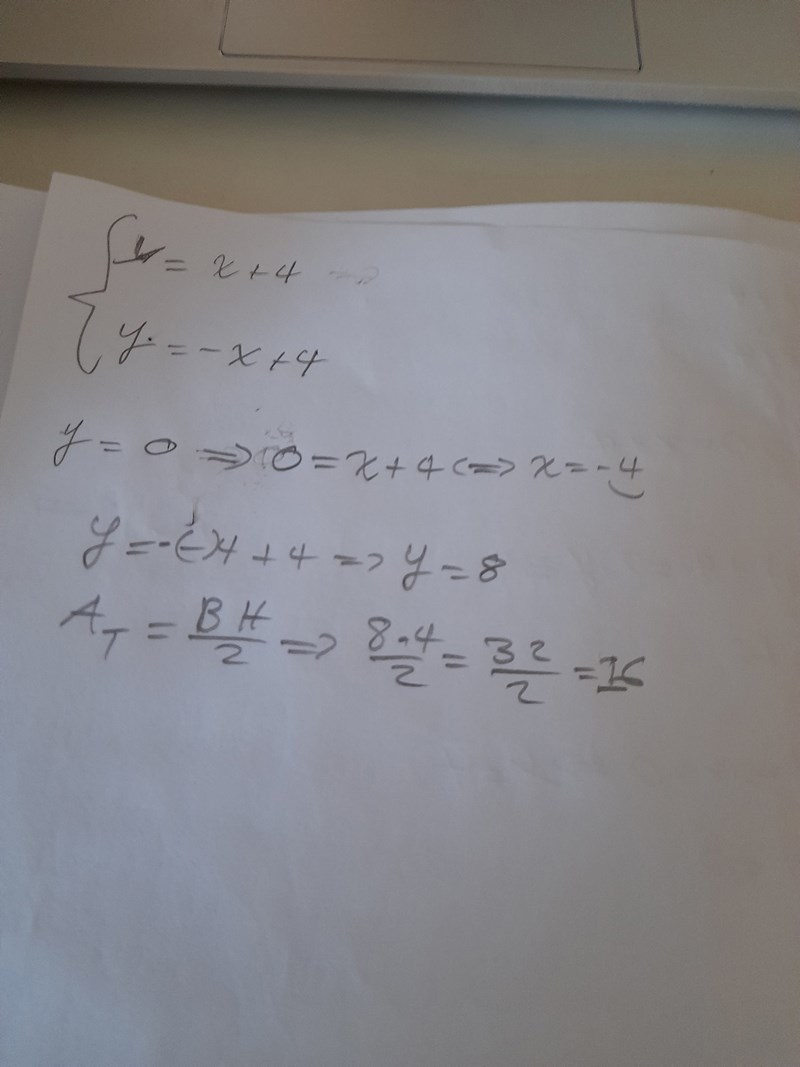 y = x + 4
y = -x + 4
y = 0 => 0 = x + 4 <=> x = -4
y = -(-)4 + 4 => y = 8
A_T = BH/2 => 8.4/2 = 32/2 = 16